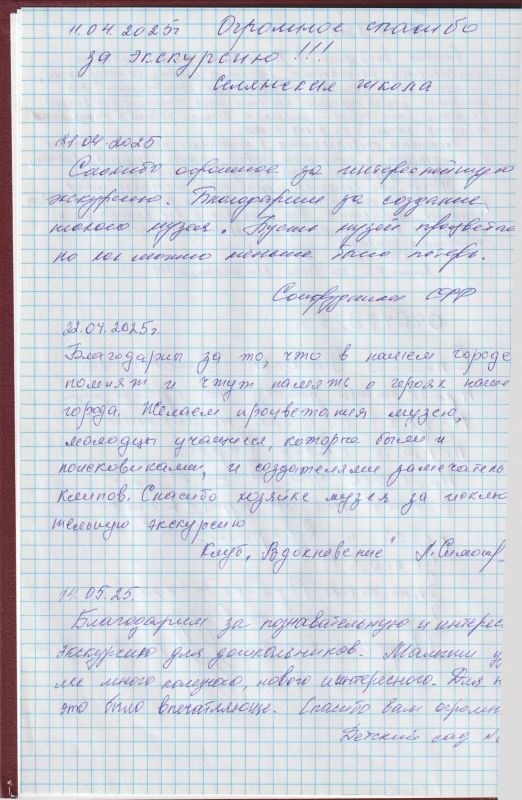 11.04.2025г Огромное спасибо
за экскурсию!!!
Селянская школа
21.04.2025
Спасибо огромное за интереснейшую
экскурсию. Благодарим за создание
такого музея. Пусть музей процвета
но как можно меньше было потерь.
Сотрудники СФР
22.04.2025г.
Благодарны за то, что в нашем городе
помнят и чтут память о героях наше
города. Желаем процветания музею,
молодцы учащиеся, которые были и
поисковиками, и создателями замечатель
клипов. Спасибо хозяйке музея за исклю
тельную экскурсию
Клуб „Вдохновение"
14.05.25.
Благодарим за познавательную и интерес
экскурсию для дошкольников. Малыши у
ли много полезного, нового и интересного. Для н
это было впечатляюще. Спасибо вам огромн
Детский сад №